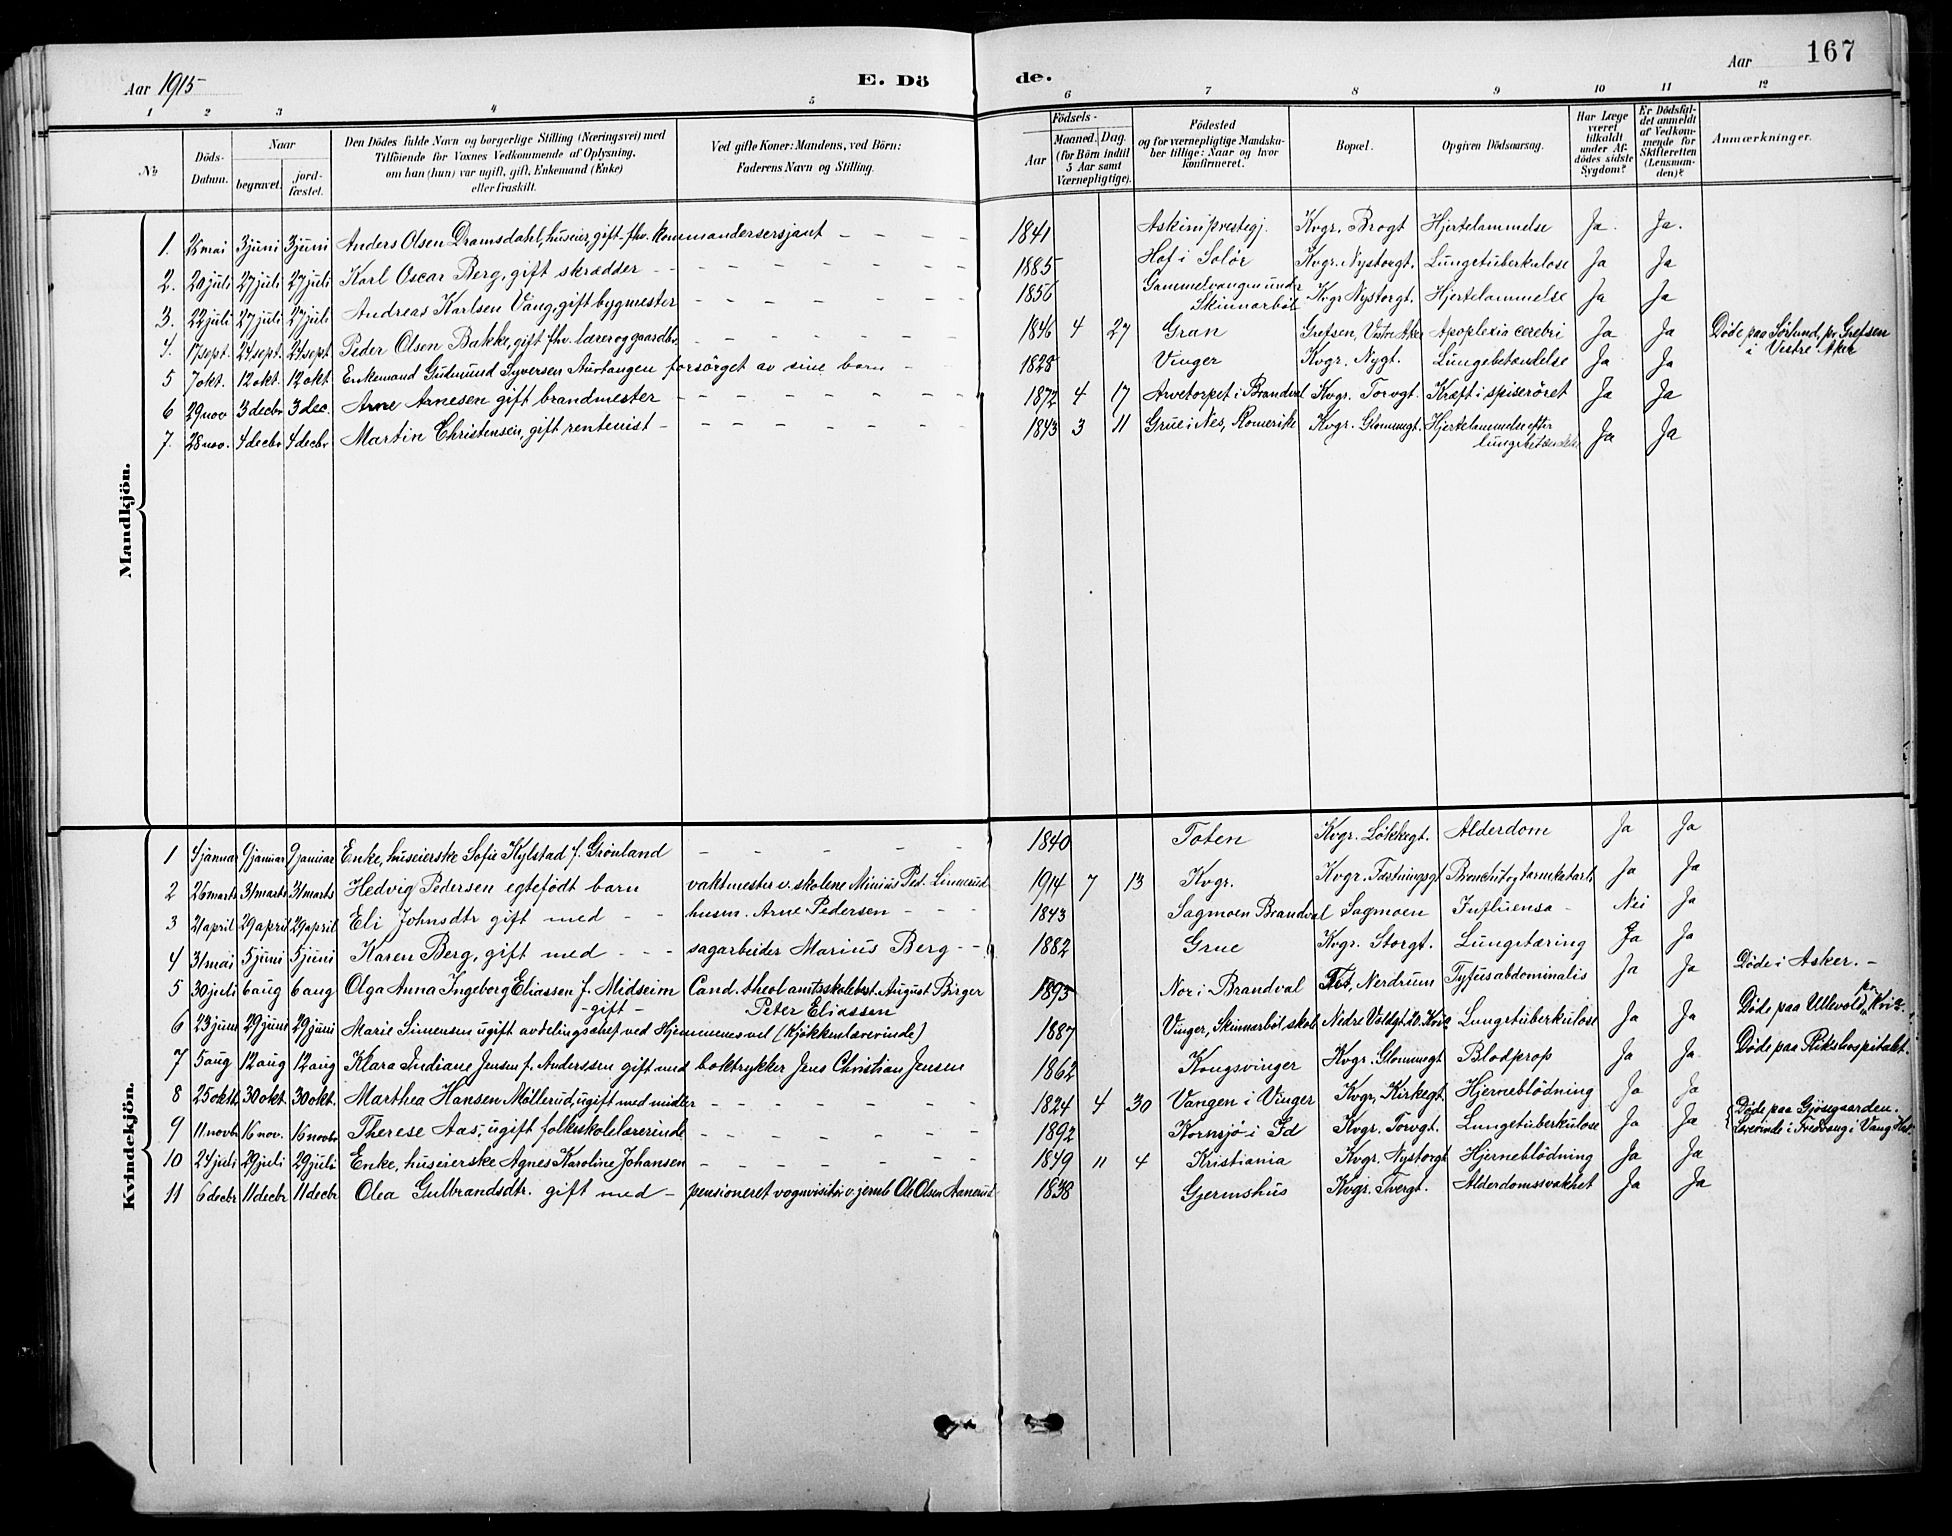 Aar 1915
E. Dö
de.
Aar
167
1 2 3 4 5 6 7 8 9 10 11 12
№
Döds-Datum.
Naar
begravet.
jord-fæstet.
Den Dödes fulde Navn og borgerlige Stilling (Næringsvei) med
Tilföiende for Voxnes Vedkommende af Oplysning,
om han (hun) var ugift, gift, Enkemand (Enke)
eller fraskilt.
Ved gifte Koner: Mandens, ved Börn:
Faderens Navn og Stilling.
Födsels-
Aar
Maaned. Dag.
(for Börn indtil
5 Aar samt
Værnepligtige).
Födested
og for værnepligtige Mandska-
ber tillige: Naar og hvor
konfirmeret.
Bopæl.
Opgiven Dödsaarsag.
Har Læge
været
tilkaldt
under Af-
dödes sidste
Sygdom?
Er Dödsfal-
det anmeldt
af Vedkom-
mende for
Skifteretten
(Lensman-
den)?
Anmærkninger.
Mandkjön.
1. 26 mai 3 juni 3 juni Anders Olsen Dramsdahl, huseier, gift. fhv. kommandersersjant – – – – 1841 Askim prestegj. Kvgr. Brogt Hjertelammelse Ja. Ja.
2. 20 juli 27 juli 27 juli Karl Oscar Berg, gift skrædder – – – – 1885 Hof i Solör Kvgr. Nystorgt. Lungetuberkulose Ja Ja
3. 22 juli 27 juli 27 juli Andreas Karlsen Vang, gift bygmester – – – – 1856 Gammelvangen under Skinnarböl Kvgr Nystorgt. Hjertelammelse Ja Ja
4. 17 sept. 24 sept. 24 sept Peder Olsen Bakke, gift fhv. lærer og gaardbr. – – – – 1846 4 27 Gran Grefsen, Vestre Aker Apoplexia cerebri Ja Ja Döde paa Sörlund, pr. Grefsen
i Vestre Aker
5 7 okt. 12 okt. 12 okt. Enkemand Gudmund Syversen Aurtangen forsörget av sine barn – – 1828 Vinger Kvgr. Nygt. Lungebetændelse Ja Ja
6 29 nov 3 decbr 3 dec. Arne Arnesen gift brandmester – – – – 1872 4 17 Arvetorpet i Brandval Kvgr. Torvgt. Kræft i spiseröret Ja Ja
7. 28 nov. 4 decbr 4 decbr Martin Christensen, gift rentenist – – – – 1843 3 11 Grue i Nes, Romerike Kvgr. Glommengt. Hjertelammelse efter
lungebetændelse Ja Ja
Kvindekjön.
1 4 januar 9 januar 9 januar Enke, huseierske Sofie Kylstad f. Grönland – – – – 1840 Toten Kvgr. Lökkegt. Alderdom Ja Ja
2 26 marts 31 marts 31 marts Hedvig Pedersen egtefödt barn vaktmester v. skolene Minius Ped. Linnerud 1914 7 13 Kvgr. Kvgr. Fæstningsgt Bronchit og tarmkatarh Ja Ja
3 21 april 29 april 29 april Eli Johnsdtr gift med – – husm. Arne Pedersen – – – 1843 Sagmoen Brandval Sagmoen Influensa – Nei Ja
4 31 mai 5 juni 5 juni Karen Berg, gift med – – – sagarbeider Marius Berg – – 1882 Grue Kvgr. Storgt. Lungetæring Ja Ja
5 30 juli 6 aug 6 aug Olga Anna Ingeborg Eliassen f. Midseim
– gift – Cand. theol amtsskolebest. August Birger
Peter Eliassen 1895 Nor i Brandval Nerdrum Tyfus abdominalis Ja Ja Döde i Asker. –
6 23 juni 29 juni 29 juni Marie Simensen ugift avdelingschef ved Hjemmenes vel (Kjökkenlærerinde) 1887 Vinger, Skinnarböl, skol. Nedre Voldgt Kvia Lungetuberkulose Ja Ja Döde paa Ullevold, Kvia.
7 5 aug 12 aug 12 aug Klara Indiane Jensen f. Anderssen gift med boktrykker Jens Christian Jensen 1862 Kongsvinger Kvgr. Glommengt Blodprop Ja Ja. Döde paa Rikshospitalet.
8 25 oktb. 30 okt. 30 okt. Marthea Hansen Möllerud, ugift med midler – – – – 1824 4 30 Vangen i Vinger Kvgr, Kirkegt Hjerneblödning Ja Ja
9 11 novbr 16 nov. 16 novbr Therese Aas, ugift folkeskolelærerinde – – – – 1892 Kornsjö i Id Kvgr. Torvgt. Lungetuberkulose Ja Ja Döde paa Gjösegaarden.
Lærerinde i Fredvang i Vang Hed.
10 24 juli 29 juli 29 juli Enke, huseierske Agnes Karoline Johansen – – – – 1849 11 4 Kristiania Kvgr. Nystorgt Hjerneblödning Ja Ja
11 6 decbr 11 decbr 11 decbr Olea Gulbrandsdtr. gift med – pensioneret vognvisitör v. jernb Ole Olsen Aanerud 1838 Gjermshus Kvgr. Tvergt. Alderdomssvakhet Ja Ja